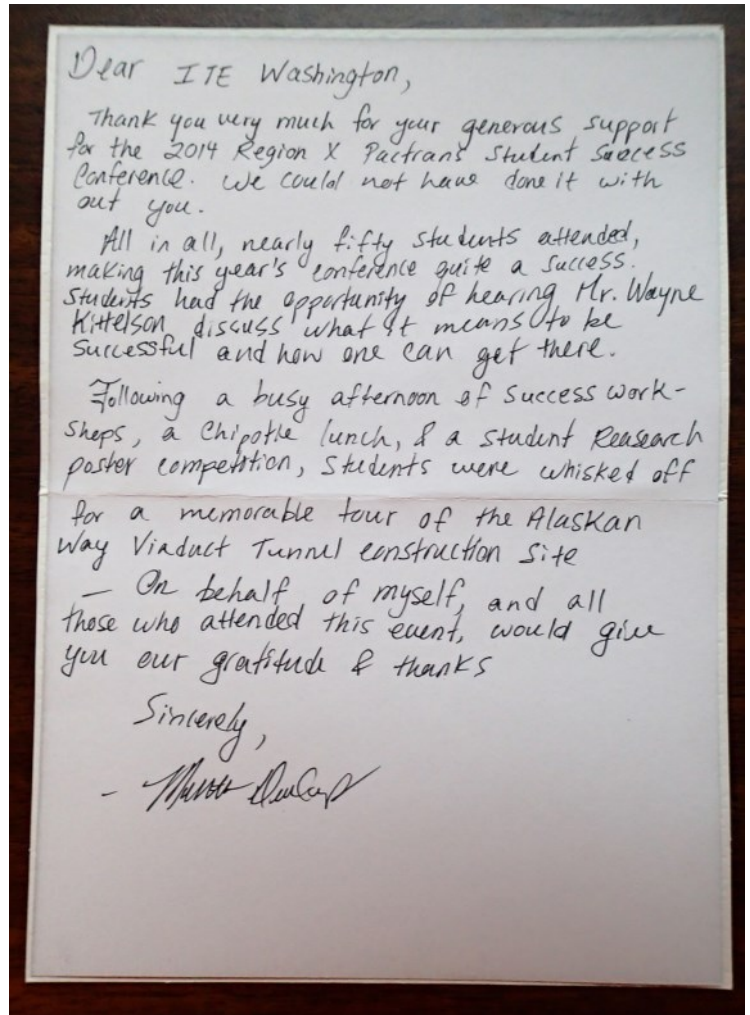 Dear ITE Washington,
Thank you very much for your generous support
for the 2014 Region X Pactrans Student Success
Conference. We could not have done it with
out you.
All in all, nearly fifty students attended,
making this year's conference quite a success.
Students had the opportunity of hearing Mr. Wayne
Kittelson discuss what it means to be
successful and how one can get there.
Following a busy afternoon of success work-
shops, a Chipotle lunch, & a student Reasearch
poster competition, students were whisked off
for a memorable tour of the Alaskan
Way Viaduct Tunnel construction site
– On behalf of myself, and all
those who attended this event, would give
you our gratitude & thanks
Sincerely,
-